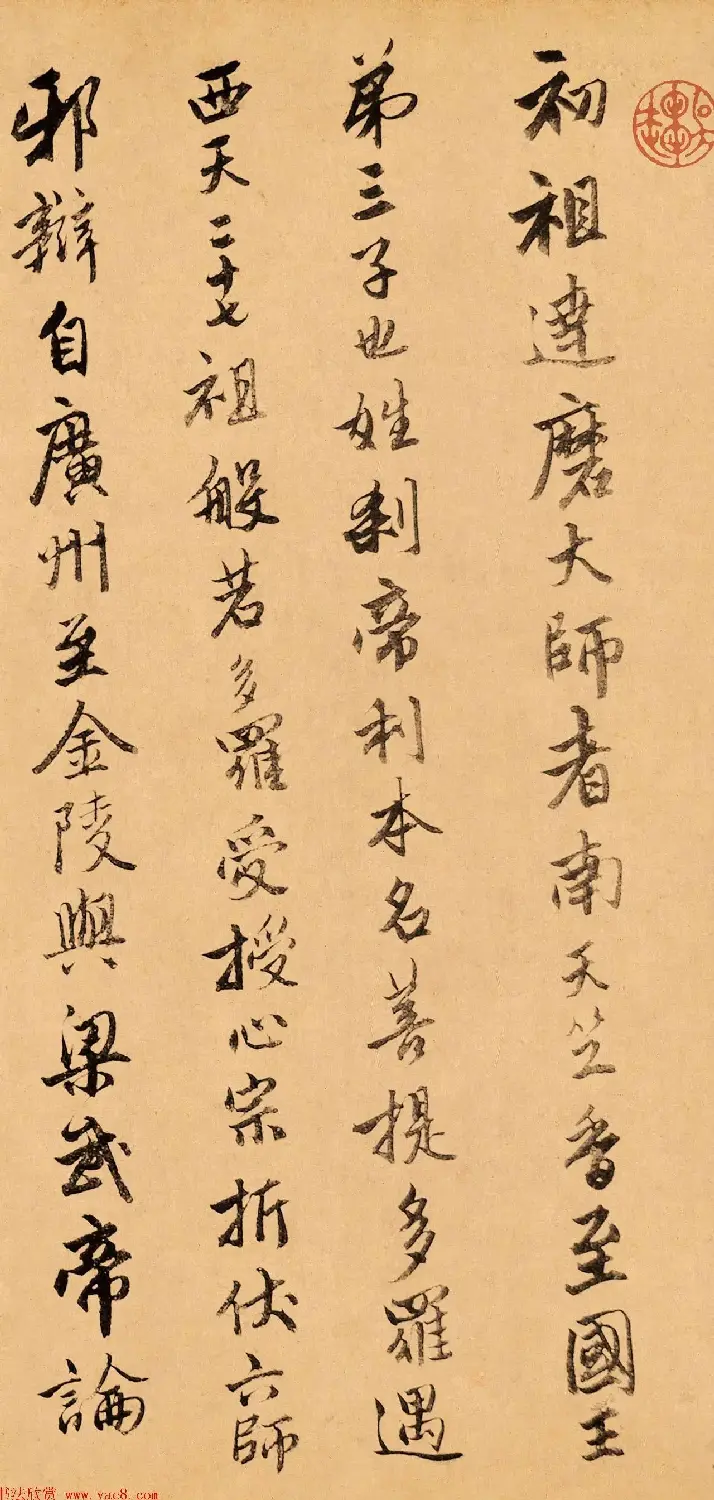 初祖達磨大師者南天竺香至國王
第三子也姓刹帝利本名菩提多羅遇
西天二十七祖般若多羅受授心宗折伏六師
邪辯自廣州至金陵與梁武帝論
书法欣赏 www.yac8.com